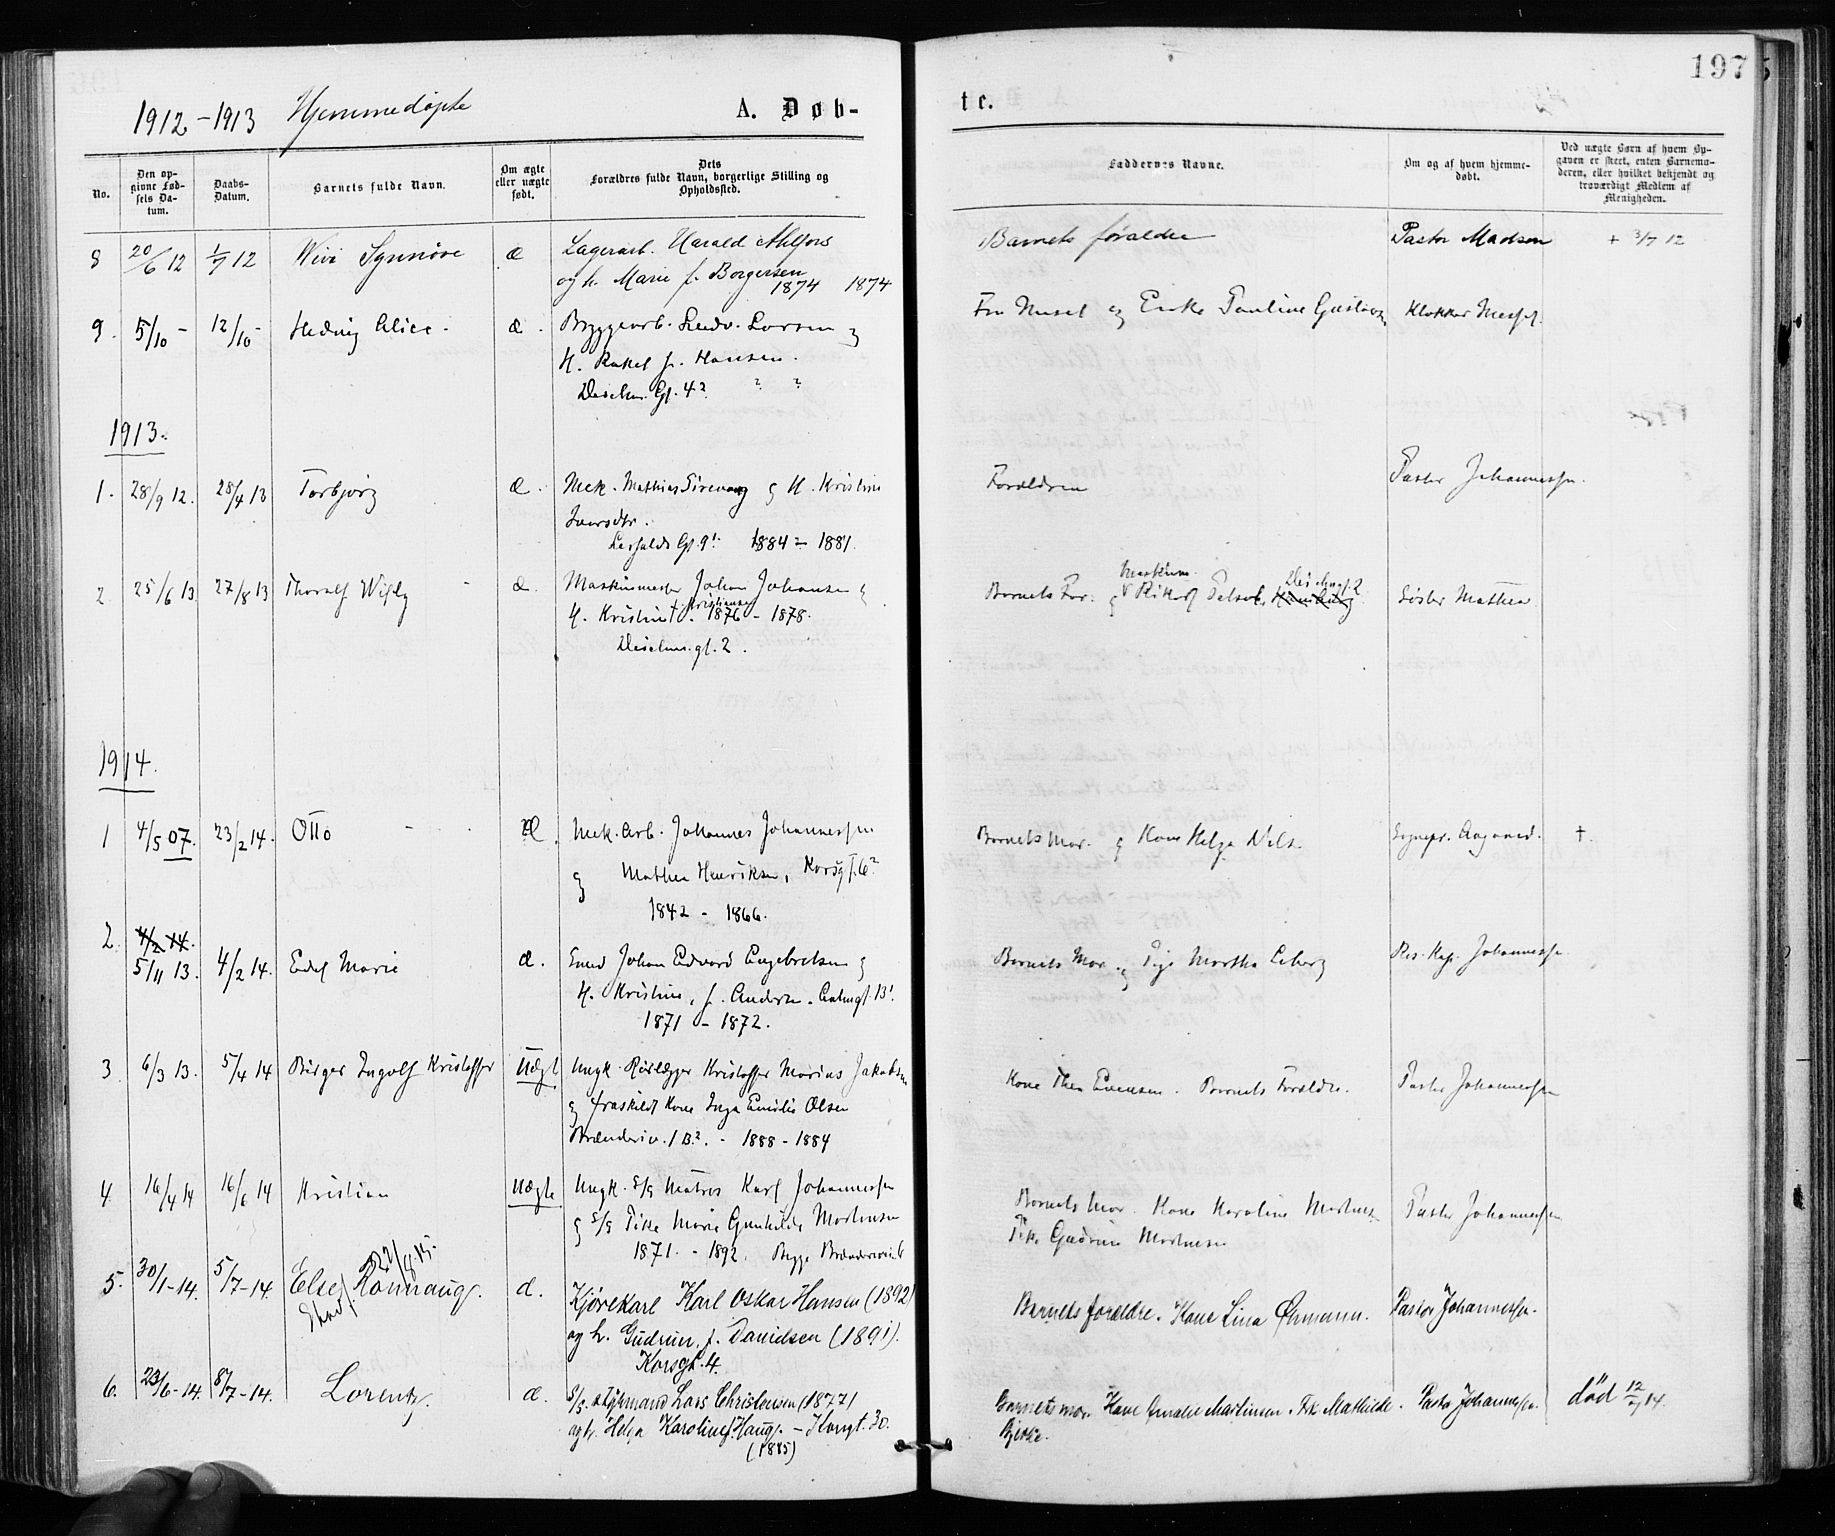 197
1912-1913 Hjemmedøpte A. Døb-
te.
No.
Den op-
givne Fød-
sels Da-
tum.
Daabs-
Datum.
Barnets fulde Navn.
Om ægte
eller uægte
født.
Dets
Forældres fulde Navn, borgerlige Stilling og
Opholdssted.
Faddernes Navne.
Om og af hvem hjemme-
døbt.
Ved uægte Børn af hvem Op-
gaven er skeet, enten Barnemo-
deren, eller hvilket bekjendt og
troværdigt Medlem af
Menigheden.
8 20/6 12 1/7 12 Synnøve æ Lagerarb. Harald Ahlfors
og h. Marie f. Borgersen
1874 1874
Barnets forældre Pastor Madsen + 3/7 12
9. 5/10 - 12/10 - Hedvig Alice. æ. Byggearb. Ludv. Larsen og
H. Rakel f. Hansen.
Deichm. Gt. 42 ? ?
Fru og Enke Pauline Klokker
1913.
1. 28/9 12. 28/4 13 Torbjørg æ. Mek. Mathias og H. Kristine
Iversdtr.
Gt. 9 1884 - 1881.
Forældrene Pastor Johannessen.
2. 25/6 13 27/8 13 Thoralf æ. Maskinmester Johan Johansen og
H. Kristine f. Kristiansen 1876 - 1878.
Deichms. gt. 2.
Barnets For. og Maskinm. Rikard Deichmgt. 2 Søster Mathea
1914.
1 4/5 07. 23/2 14. Otto Æ. Mek. Arb. Johannes Johannessen
og Mathea Henriksen, Korsgt. 6 2
1842 - 1866.
Barnets Mor. og Kone Helga Nils Sognepr. Aaganæs. †.
2. 4/2 14.
5/11 13. 4/2 14. Marie æ. Smed Johan Edvard Engebretsen og
H. Kristine, f. Anders. 13 1.
1871 - 1872.
Barnets Mor. og Pige Martha Res. Kap. Johannessen
3. 6/3 13. 5/4 14 Birger Ingolf Kristoffer Uægt Ungk. Rørlægger Kristoffer Marius Jakobsen
og fraskildt Kone Inga Emilie Olsen
Brænderiv. 1 B 2. - 1888 - 1884
Kone Thea Evensen. Barnets Forældre. Pastor Johannessen
4. 16/4 14 16/6 14 Kristian Uægte Ungk. S/g Matros Karl Johannessen
og S/g Pike Marie Gunhilde Mortensen
1871. - 1892. Begge Brænderivei 6
Barnets Mor. Kone Karoline Mortens
Pike Gudrun Mortensen
Pastor Johannessen
5. 30/1-14. 5/7-14. Else Rannaug. æ. Kjørekarl Karl Oskar Hansen (1892)
og h. Gudrun, f. Danielsen (1891).
Korsgt. 4.
Barnets forældre. Kone Lina Øhmann. Pastor Johannessen.
6. 23/6-14. 8/7-14. Lorentz. æ. S/g. styrmand Lars Christensen (1877)
og h. Helga Karoline f. Haug. - Korsgt. 30.
(1885)
Barnets mor. Kone Amalie Martinsen. Frk. Mathilde
Bjerke.
Pastor Johannessen. død 12/7 14.